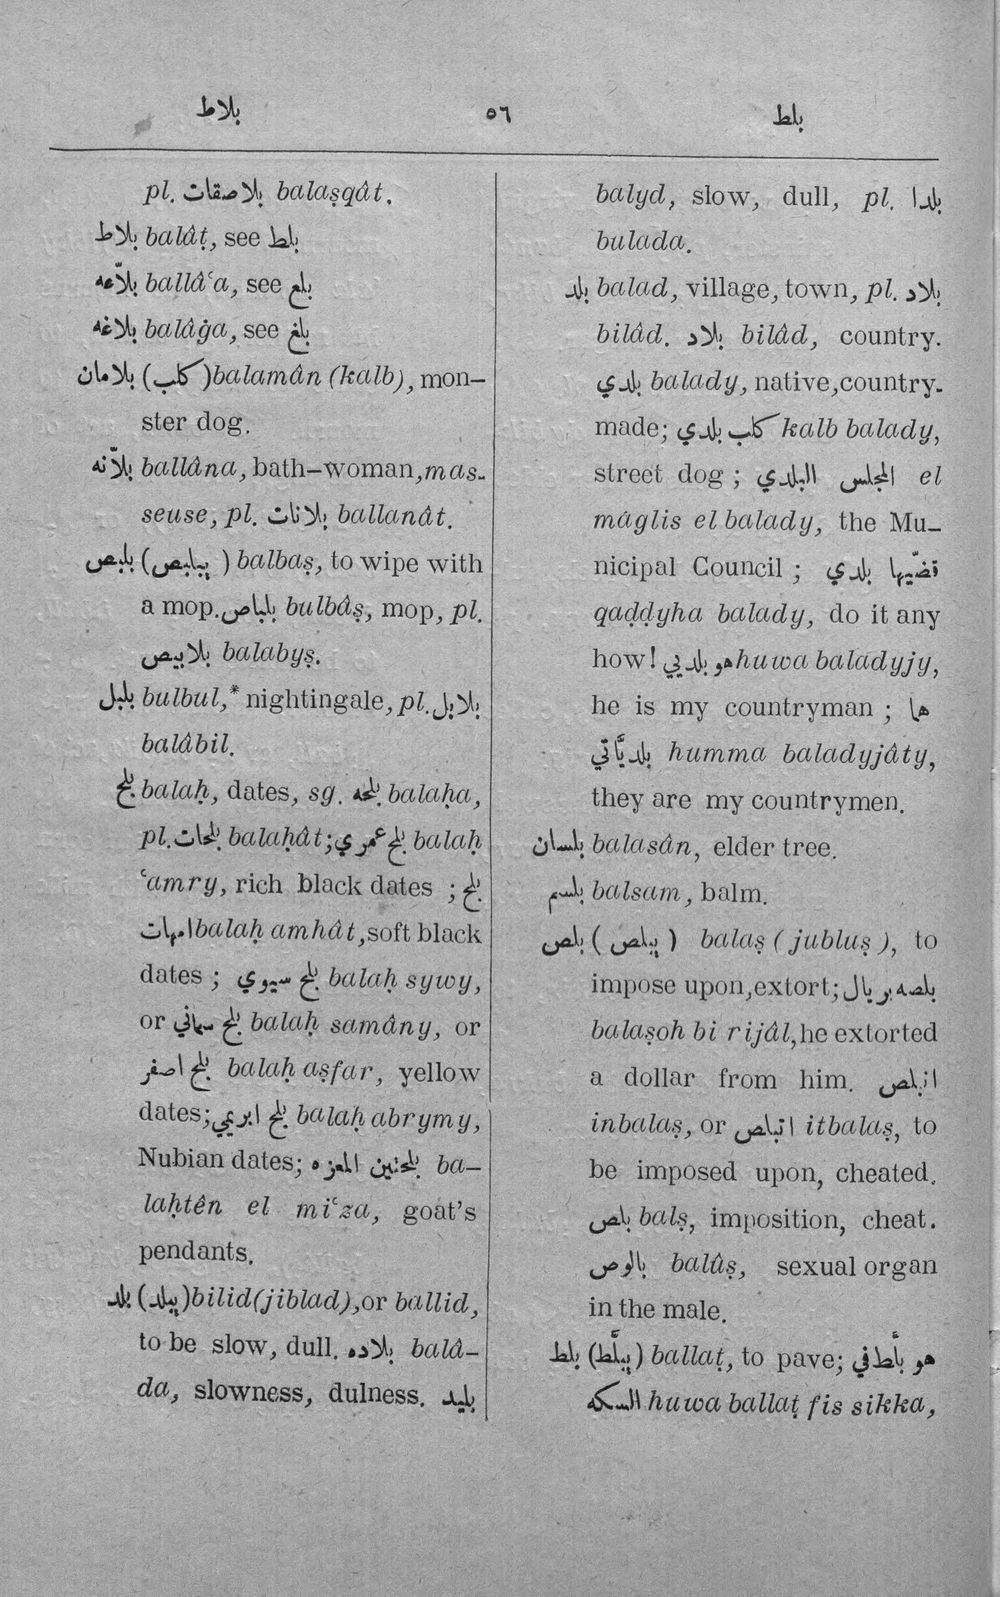 بلاط ٥٦ بلط
pl. بلاصقات balaṣqât.
بلاط balâṭ, see بلط
بلّاعه ballâʿa, see بلع
بلاغه balâġa, see بلغ
بلامان (كلب) balamân (kalb), mon-
ster dog.
بلّانه ballâna, bath-woman, mas-
seuse, pl. بلانات ballanât.
بلبص (يبلبص) balbaṣ, to wipe with
a mop. بلباص bulbâṣ, mop, pl.
بلابيص balabyṣ.
بلبل bulbul,* nightingale, pl. بلابل
balâbil.
بلح balaḥ, dates, sg. بلحه balaḥa,
pl. بلحات balaḥât; بلح عمري balaḥ
ʿamry, rich black dates ; بلح
امهات balaḥ amhât, soft black
dates ; بلح سيوي balaḥ sywy,
or بلح سماني balaḥ samâny, or
بلح اصفر balaḥ aṣfar, yellow
dates; بلح ابريمي balaḥ abrymy,
Nubian dates; بلحتين المعزه ba-
laḥtên el miʿza, goat's
pendants.
بلد (يبلد) bilid (jiblad), or ballid,
to be slow, dull. بلاده balâ-
da, slowness, dulness. بليد
balyd, slow, dull, pl. بلدا
bulada.
بلد balad, village, town, pl. بلاد
bilâd. بلاد bilâd, country.
بلدي balady, native, country-
made; كلب بلدي kalb balady,
street dog ; المجلس البلدي el
máglis el balady, the Mu-
nicipal Council ; قضّيها بلدي
qaḍḍyha balady, do it any
how! هو بلديي huwa baladyjy,
he is my countryman ; هما
بلديّاتي humma baladyjâty,
they are my countrymen.
بلسان balasân, elder tree.
بلسم balsam, balm.
بلص (يبلص) balaṣ (jubluṣ), to
impose upon, extort; بلصه بريال
balaṣoh bi rijâl, he extorted
a dollar from him. انبلص
inbalaṣ, or اتبلص itbalaṣ, to
be imposed upon, cheated.
بلص balṣ, imposition, cheat.
بالوص balûṣ, sexual organ
in the male.
بلط (يبلّط) ballaṭ, to pave; هو بلّط في
السكه huwa ballaṭ fis sikka,